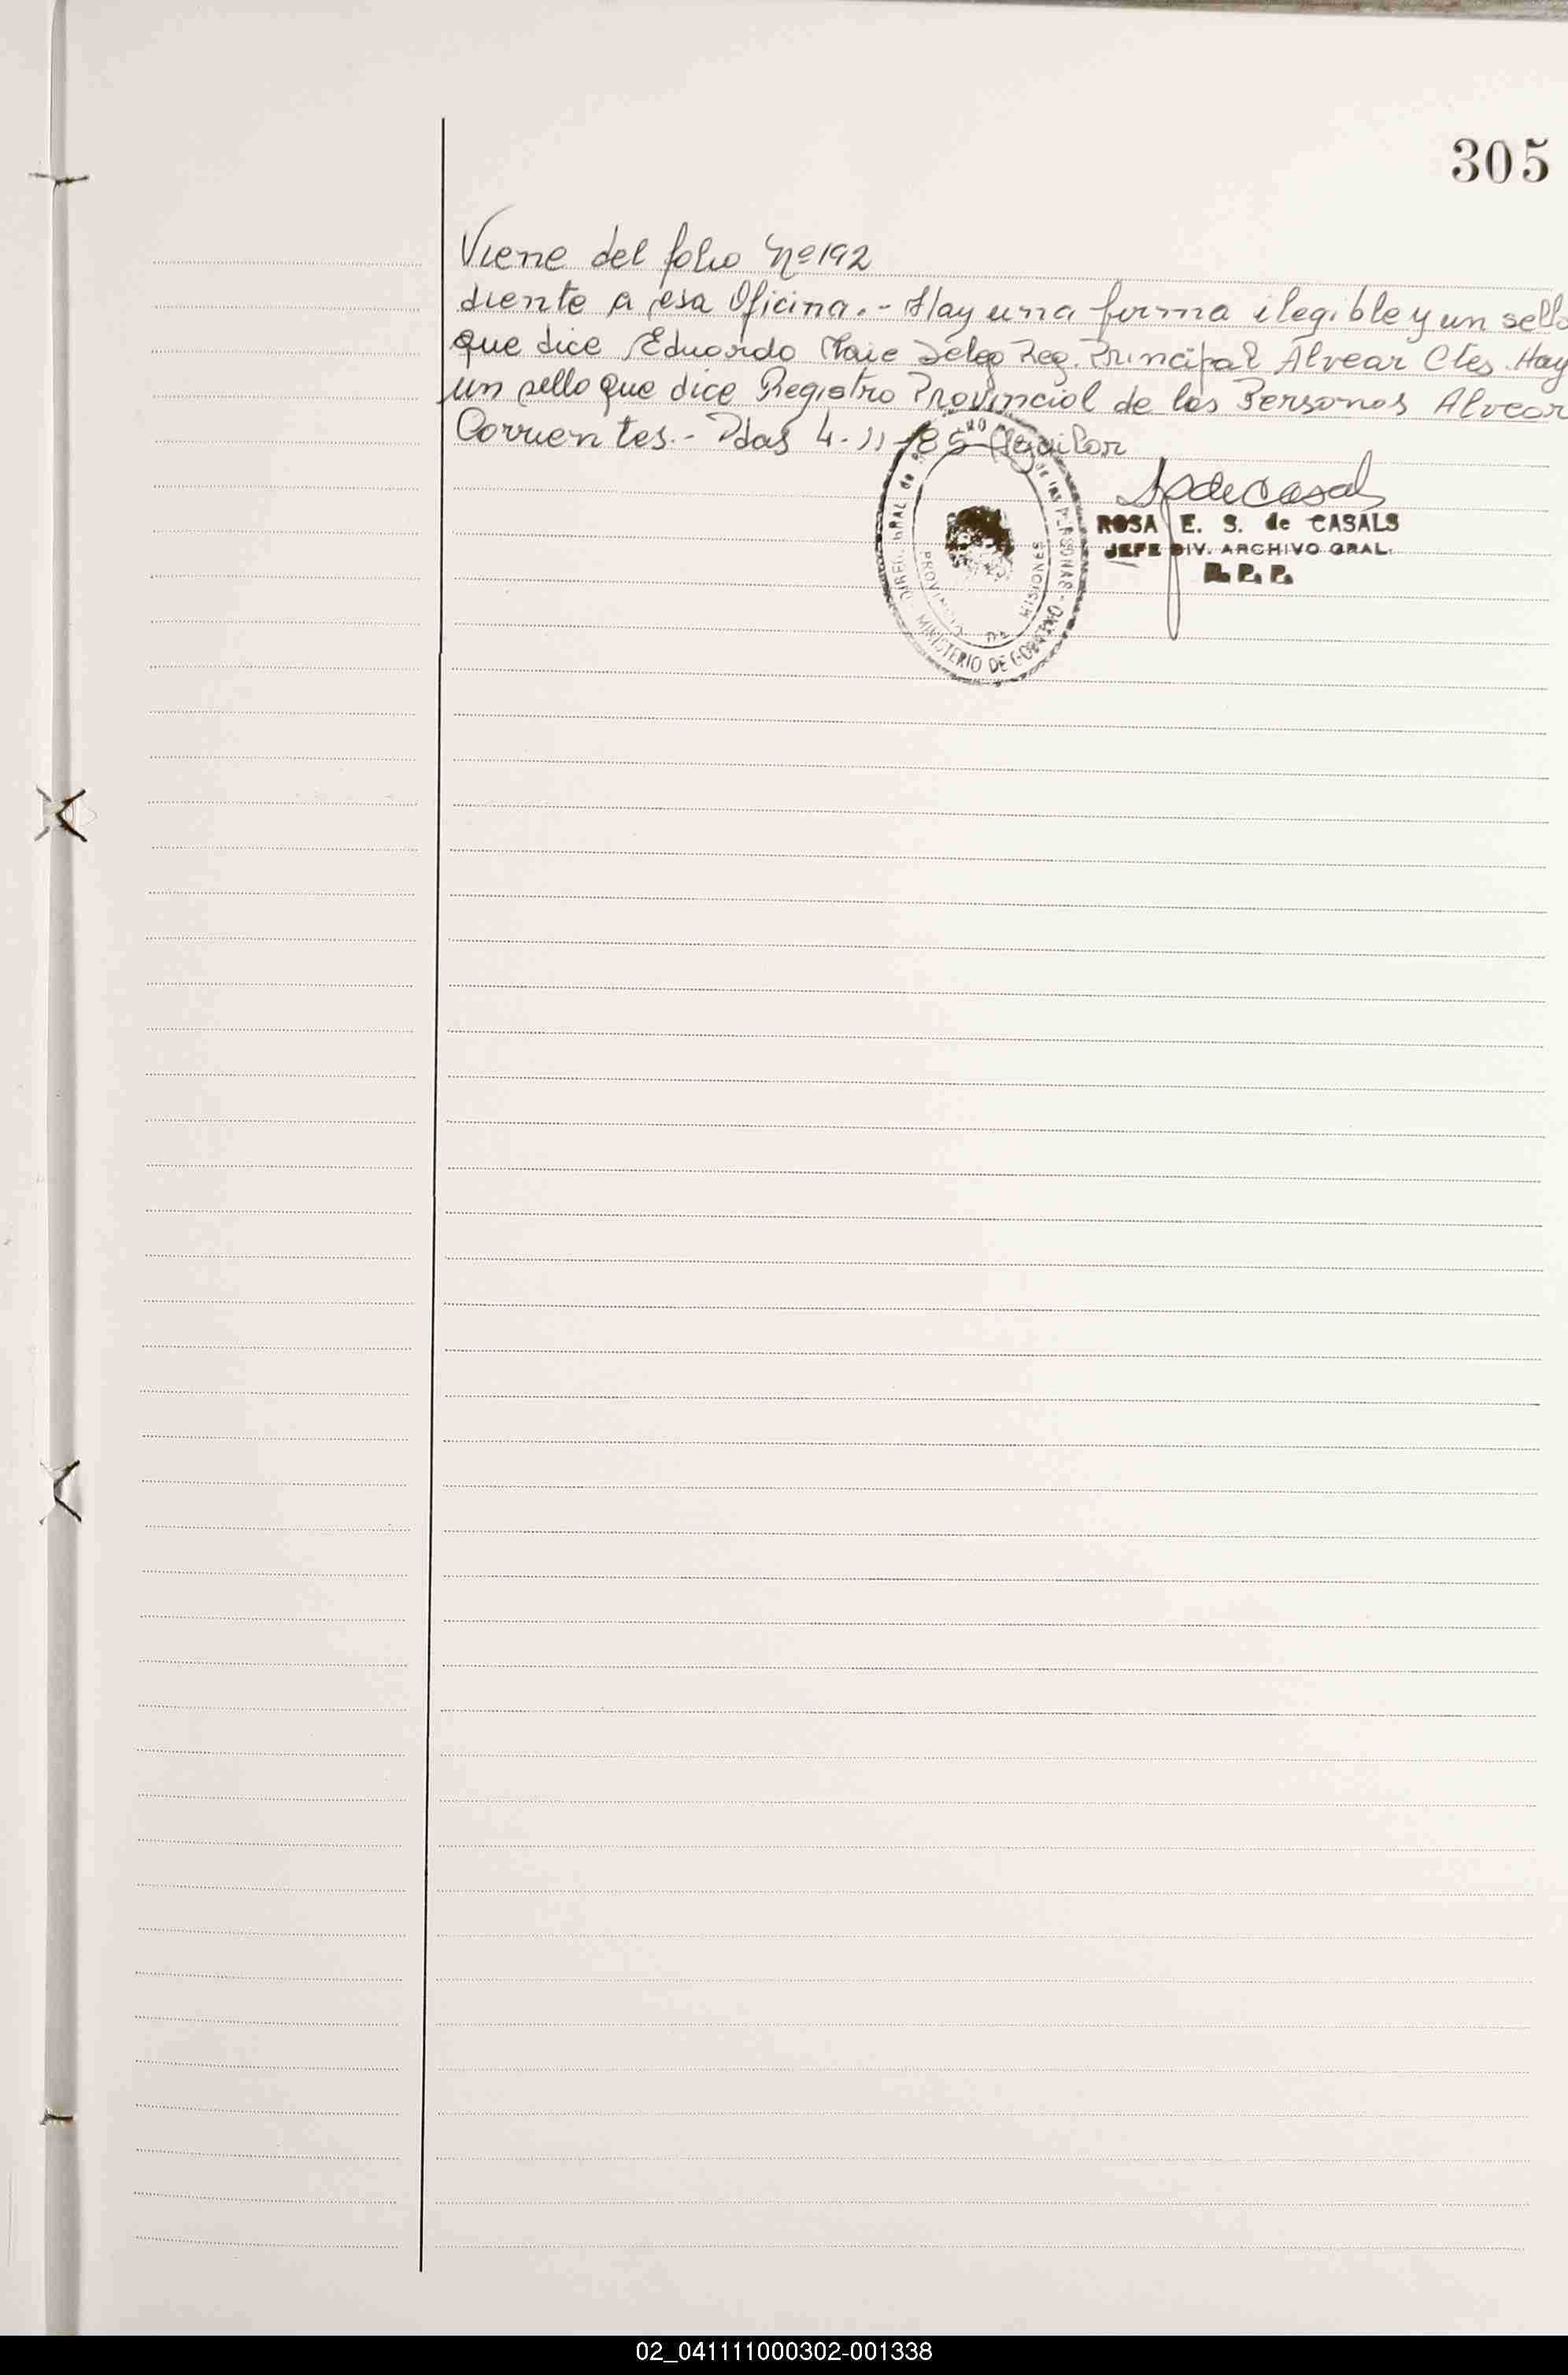 305
Viene del folio Nº 192
diente a esa Oficina. - Hay una firma ilegible y un sello
que dice Eduardo Deleg Reg. Principal Alvear Ctes. Hay
un sello que dice Registro Provincial de las Personas Alvear
Corrientes. - Pdas 4-11-85 Aguilar
DIREC. GRAL de de las PERSONAS - MINISTERIO DE GOBIERNO
PROVINCIA DE MISIONES
ROSA E. S. de CASALS
JEFE DIV. ARCHIVO GRAL.
R. P. P.
02_041111000302-001338